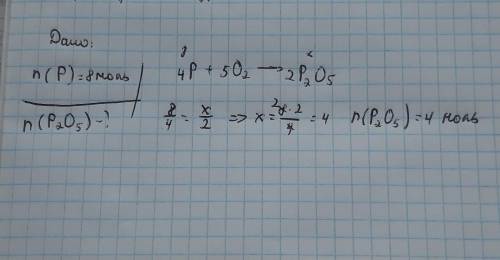 Дано:
n(P)=8 моль
n(P₂O₅)-?
8 x
4P + 5O₂ → 2P₂O₅
8/4 = x/2 => x = 8·2/4 = 4 n(P₂O₅)=4 моль